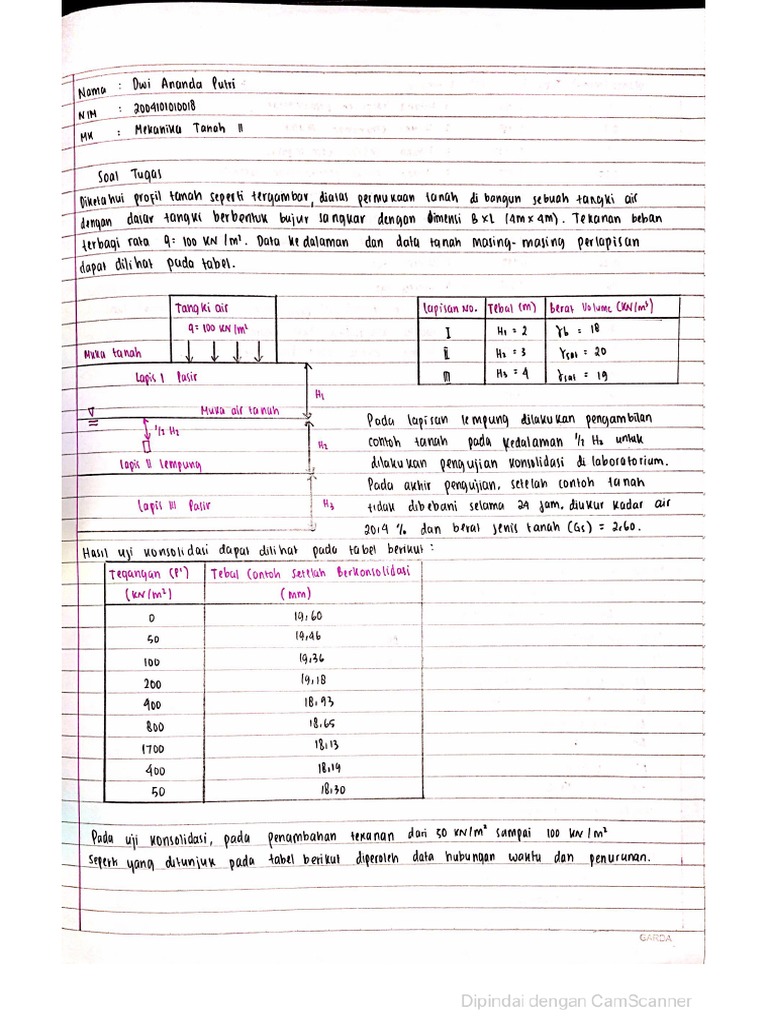 Nama : Dwi Ananda Putri
NIM : 2004101010018
MK : Mekanika Tanah II
Soal Tugas
Diketahui profil tanah seperti tergambar, diatas permukaan tanah di bangun sebuah tangki air
dengan dasar tangki berbentuk bujur sangkar dengan dimensi B x L (4m x 4m). Tekanan beban
terbagi rata q = 100 KN/m². Data kedalaman dan data tanah masing-masing perlapisan
dapat dilihat pada tabel.
Tangki air
q = 100 KN/m²
Muka tanah
Lapis I Pasir
H₁
Muka air tanah
1/2 H₂
H₂
Lapis II Lempung
Lapis III Pasir
H₃
Lapisan No. Tebal (m) Berat Volume (KN/m³)
I H₁ = 2 γb = 18
II H₂ = 3 γsat = 20
III H₃ = 4 γsat = 19
Pada lapisan lempung dilakukan pengambilan
contoh tanah pada kedalaman 1/2 H₂ untuk
dilakukan pengujian konsolidasi di laboratorium.
Pada akhir pengujian, setelah contoh tanah
tidak dibebani selama 24 jam, diukur kadar air
20,4 % dan berat jenis tanah (Gs) = 2,60.
Hasil uji konsolidasi dapat dilihat pada tabel berikut :
Tegangan (P') Tebal Contoh Setelah Berkonsolidasi
(KN/m²) (mm)
0 19,60
50 19,46
100 19,36
200 19,18
400 18,93
800 18,65
1700 18,13
400 18,19
50 18,30
Pada uji konsolidasi, pada penambahan tekanan dari 50 KN/m² sampai 100 KN/m²
seperti yang ditunjuk pada tabel berikut diperoleh data hubungan waktu dan penurunan.
GARDA
Dipindai dengan CamScanner